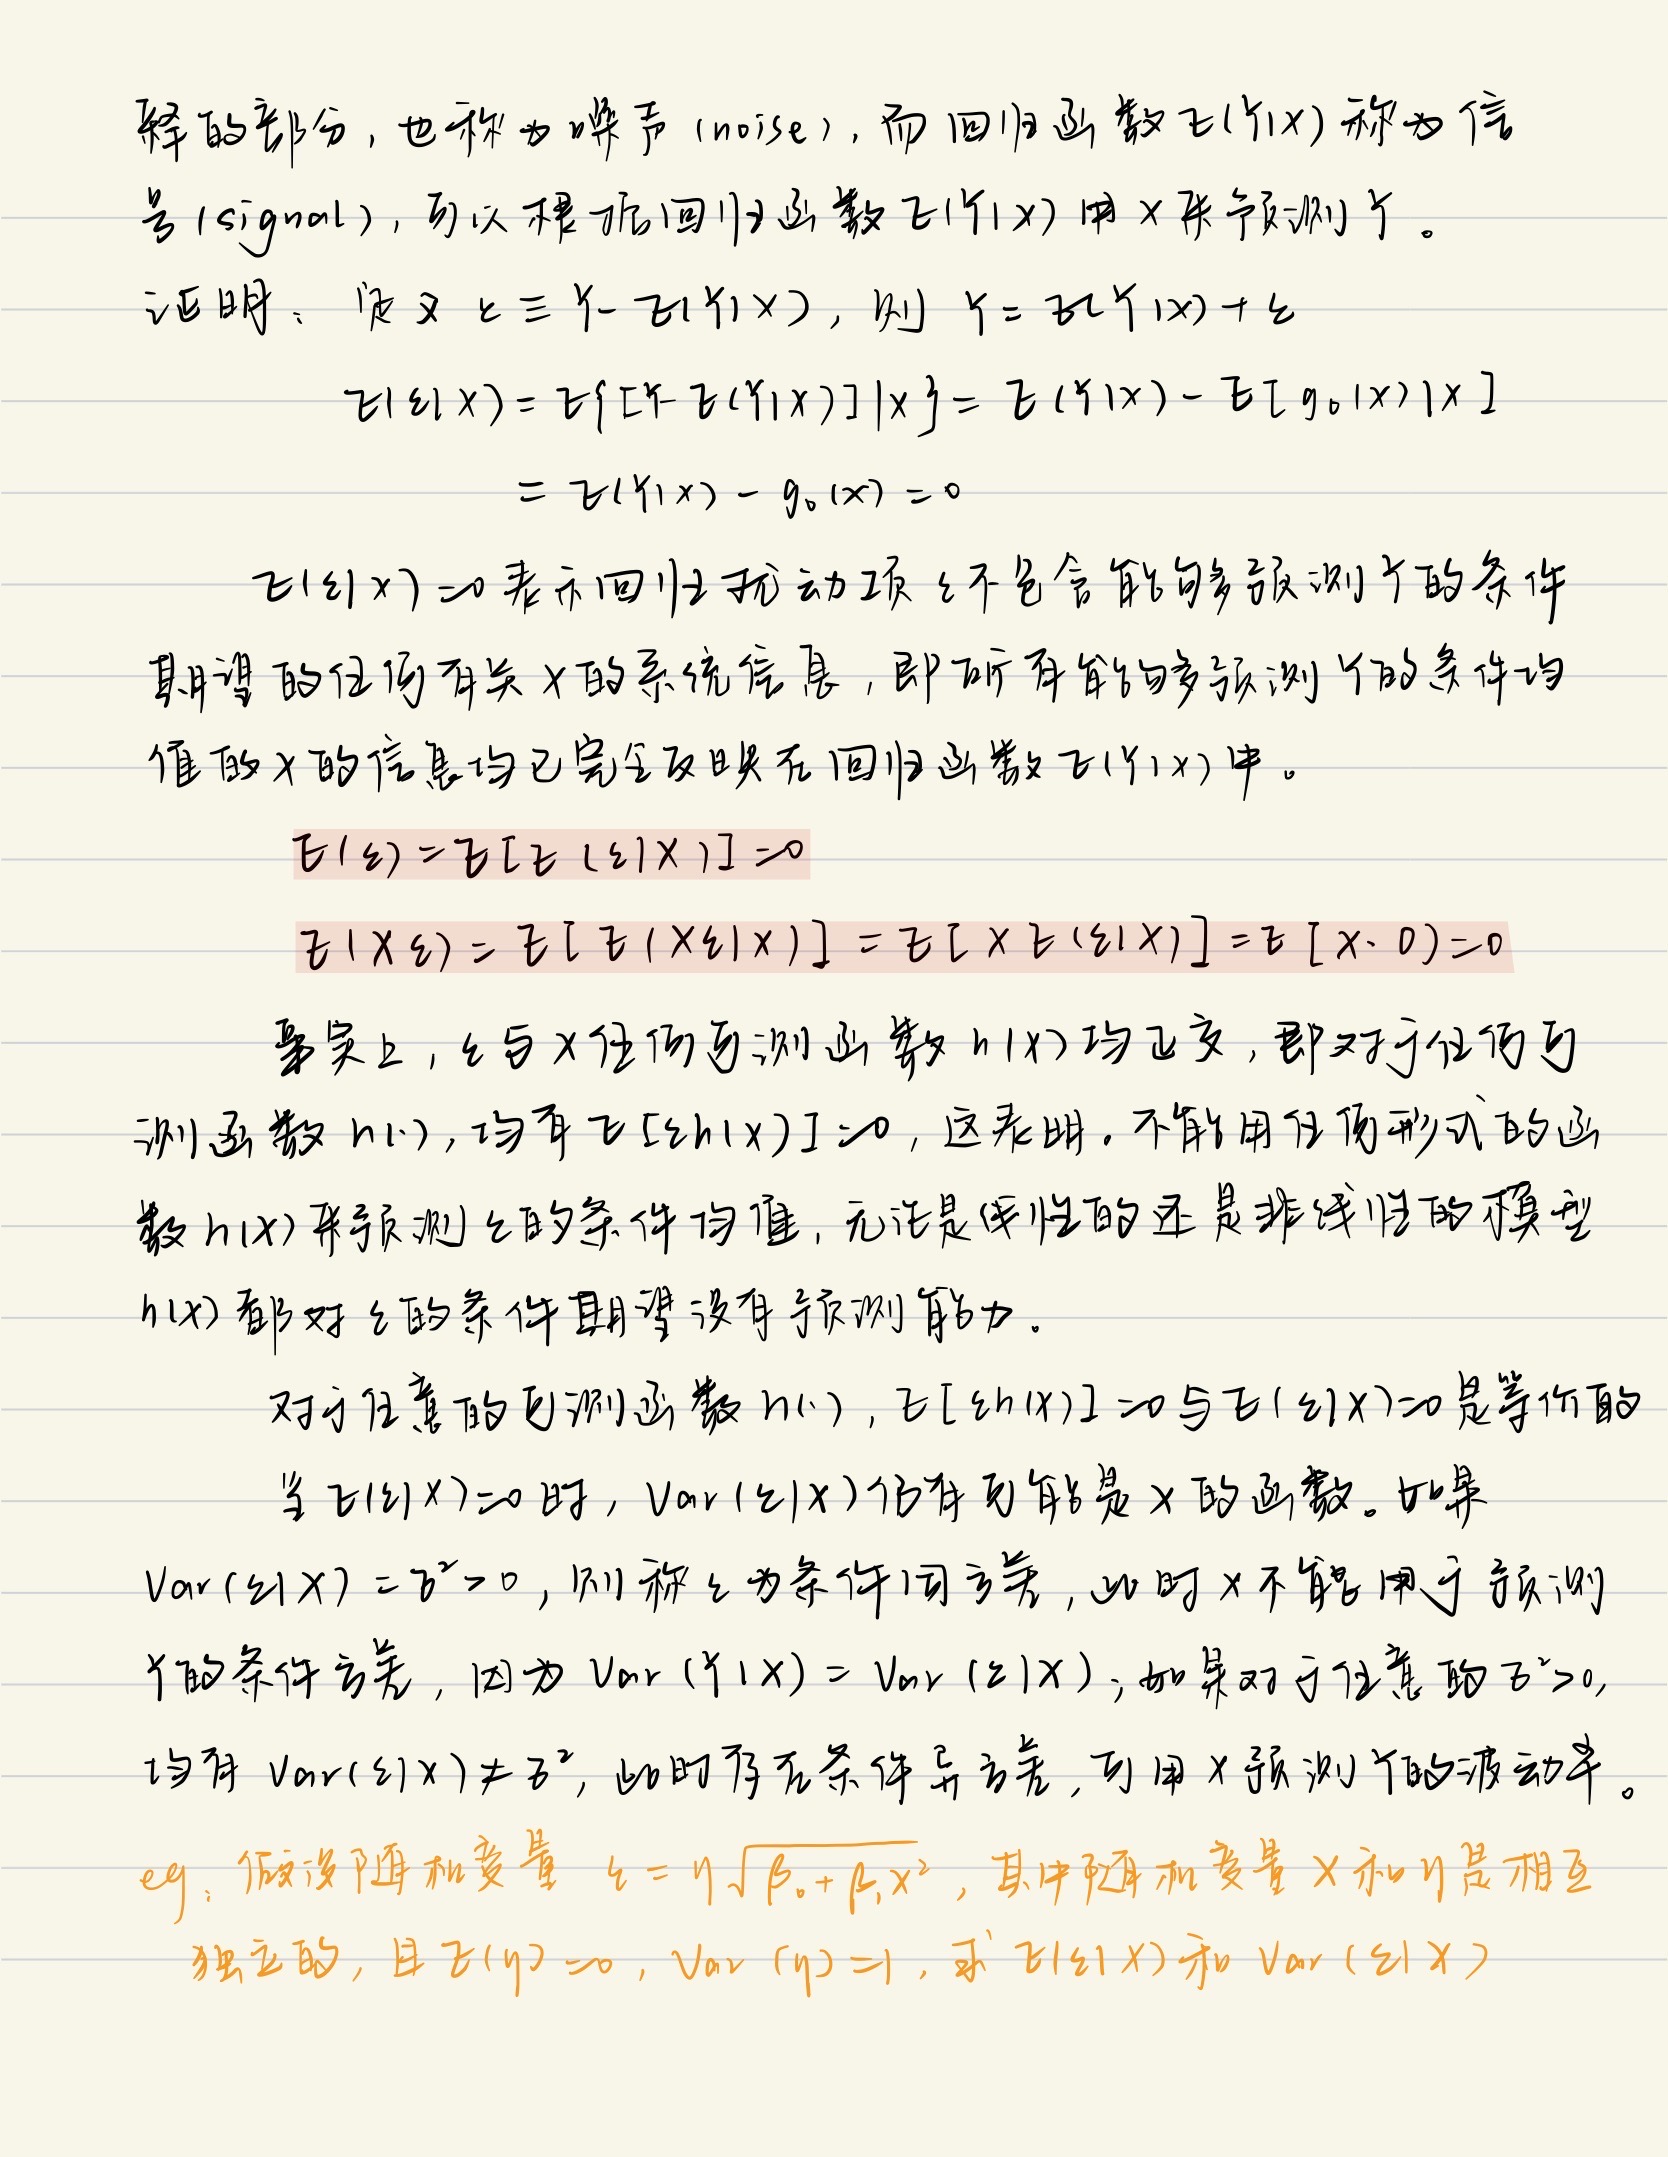 释的部分，也称为噪声（noise），而回归函数E(Y|X)称为信
号（signal），可以根据回归函数E(Y|X)用X来预测Y。
证明：定义 ε≡Y-E(Y|X)，则 Y=E(Y|X)+ε
E(ε|X)=E{[Y-E(Y|X)]|X}=E(Y|X)-E[g₀(X)|X]
=E(Y|X)-g₀(X)=0
E(ε|X)=0表示回归扰动项ε不包含能够预测Y的条件
期望的任何有关X的系统信息，即所有能够预测Y的条件均
值的X的信息均已完全反映在回归函数E(Y|X)中。
E(ε)=E[E(ε|X)]=0
E(Xε)=E[E(Xε|X)]=E[XE(ε|X)]=E[X·0)=0
事实上，ε与X任何可测函数h(X)均正交，即对于任何可
测函数h(·)，均有E[εh(X)]=0，这表明。不能用任何形式的函
数h(X)来预测ε的条件均值，无论是线性的还是非线性的模型
h(X)都对ε的条件期望没有预测能力。
对于任意的可测函数h(·)，E[εh(X)]=0与E(ε|X)=0是等价的
当E(ε|X)=0时，Var(ε|X)仍有可能是X的函数。如果
Var(ε|X)=σ²>0，则称ε为条件同方差，此时X不能用于预测
Y的条件方差，因为Var(Y|X)=Var(ε|X)；如果对于任意的σ²>0，
均有Var(ε|X)≠σ²，此时存在条件异方差，可用X预测Y的波动率。
eg：假设随机变量 ε=η√(β₀+β₁X²)，其中随机变量X和η是相互
独立的，且E(η)=0，Var(η)=1，求E(ε|X)和Var(ε|X)